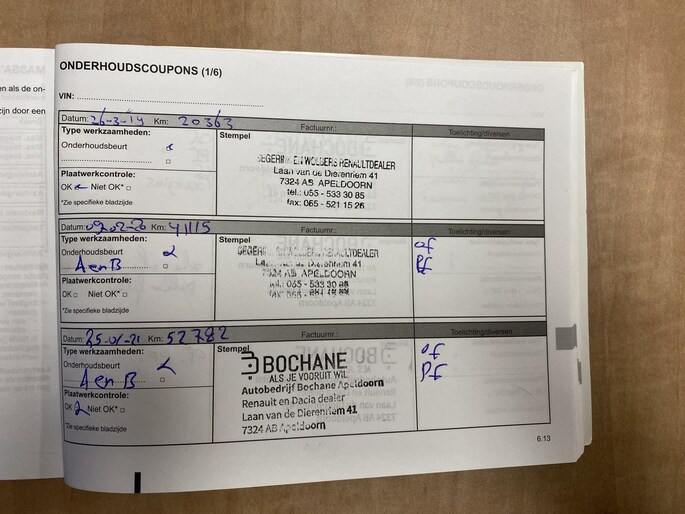 MASSA
en als de on-
zijn door een
ONDERHOUDSCOUPONS (1/6)
VIN:
Datum: 26-3-19 Km: 20363 Factuurnr.: Toelichting/diversen
Type werkzaamheden: Stempel
Onderhoudsbeurt
SEGERINK EN WOLBERS RENAULTDEALER
Laan van de Dierenriem 41
7324 AS APELDOORN
tel.: 055 - 533 30 85
fax: 055 - 521 15 26
Plaatwerkcontrole:
OK Niet OK*
*Zie specifieke bladzijde
Datum: 09-02-20 Km: 41115 Factuurnr.: Toelichting/diversen
Type werkzaamheden: Stempel
Onderhoudsbeurt
A en B
RENAULTDEALER
Laan van de Dierenriem 41
7324 AS APELDOORN
tel.: 055 - 533 30 85
of
Pf
Plaatwerkcontrole:
OK Niet OK*
*Zie specifieke bladzijde
Datum: 25-01-21 Km: 52782 Factuurnr.: Toelichting/diversen
Type werkzaamheden: Stempel
Onderhoudsbeurt
A en B
BOCHANE
ALS JE VOORUIT WIL
Autobedrijf Bochane Apeldoorn
Renault en Dacia dealer
Laan van de Dierenriem 41
7324 AB Apeldoorn
of
Pf
Plaatwerkcontrole:
OK Niet OK*
*Zie specifieke bladzijde
6.13